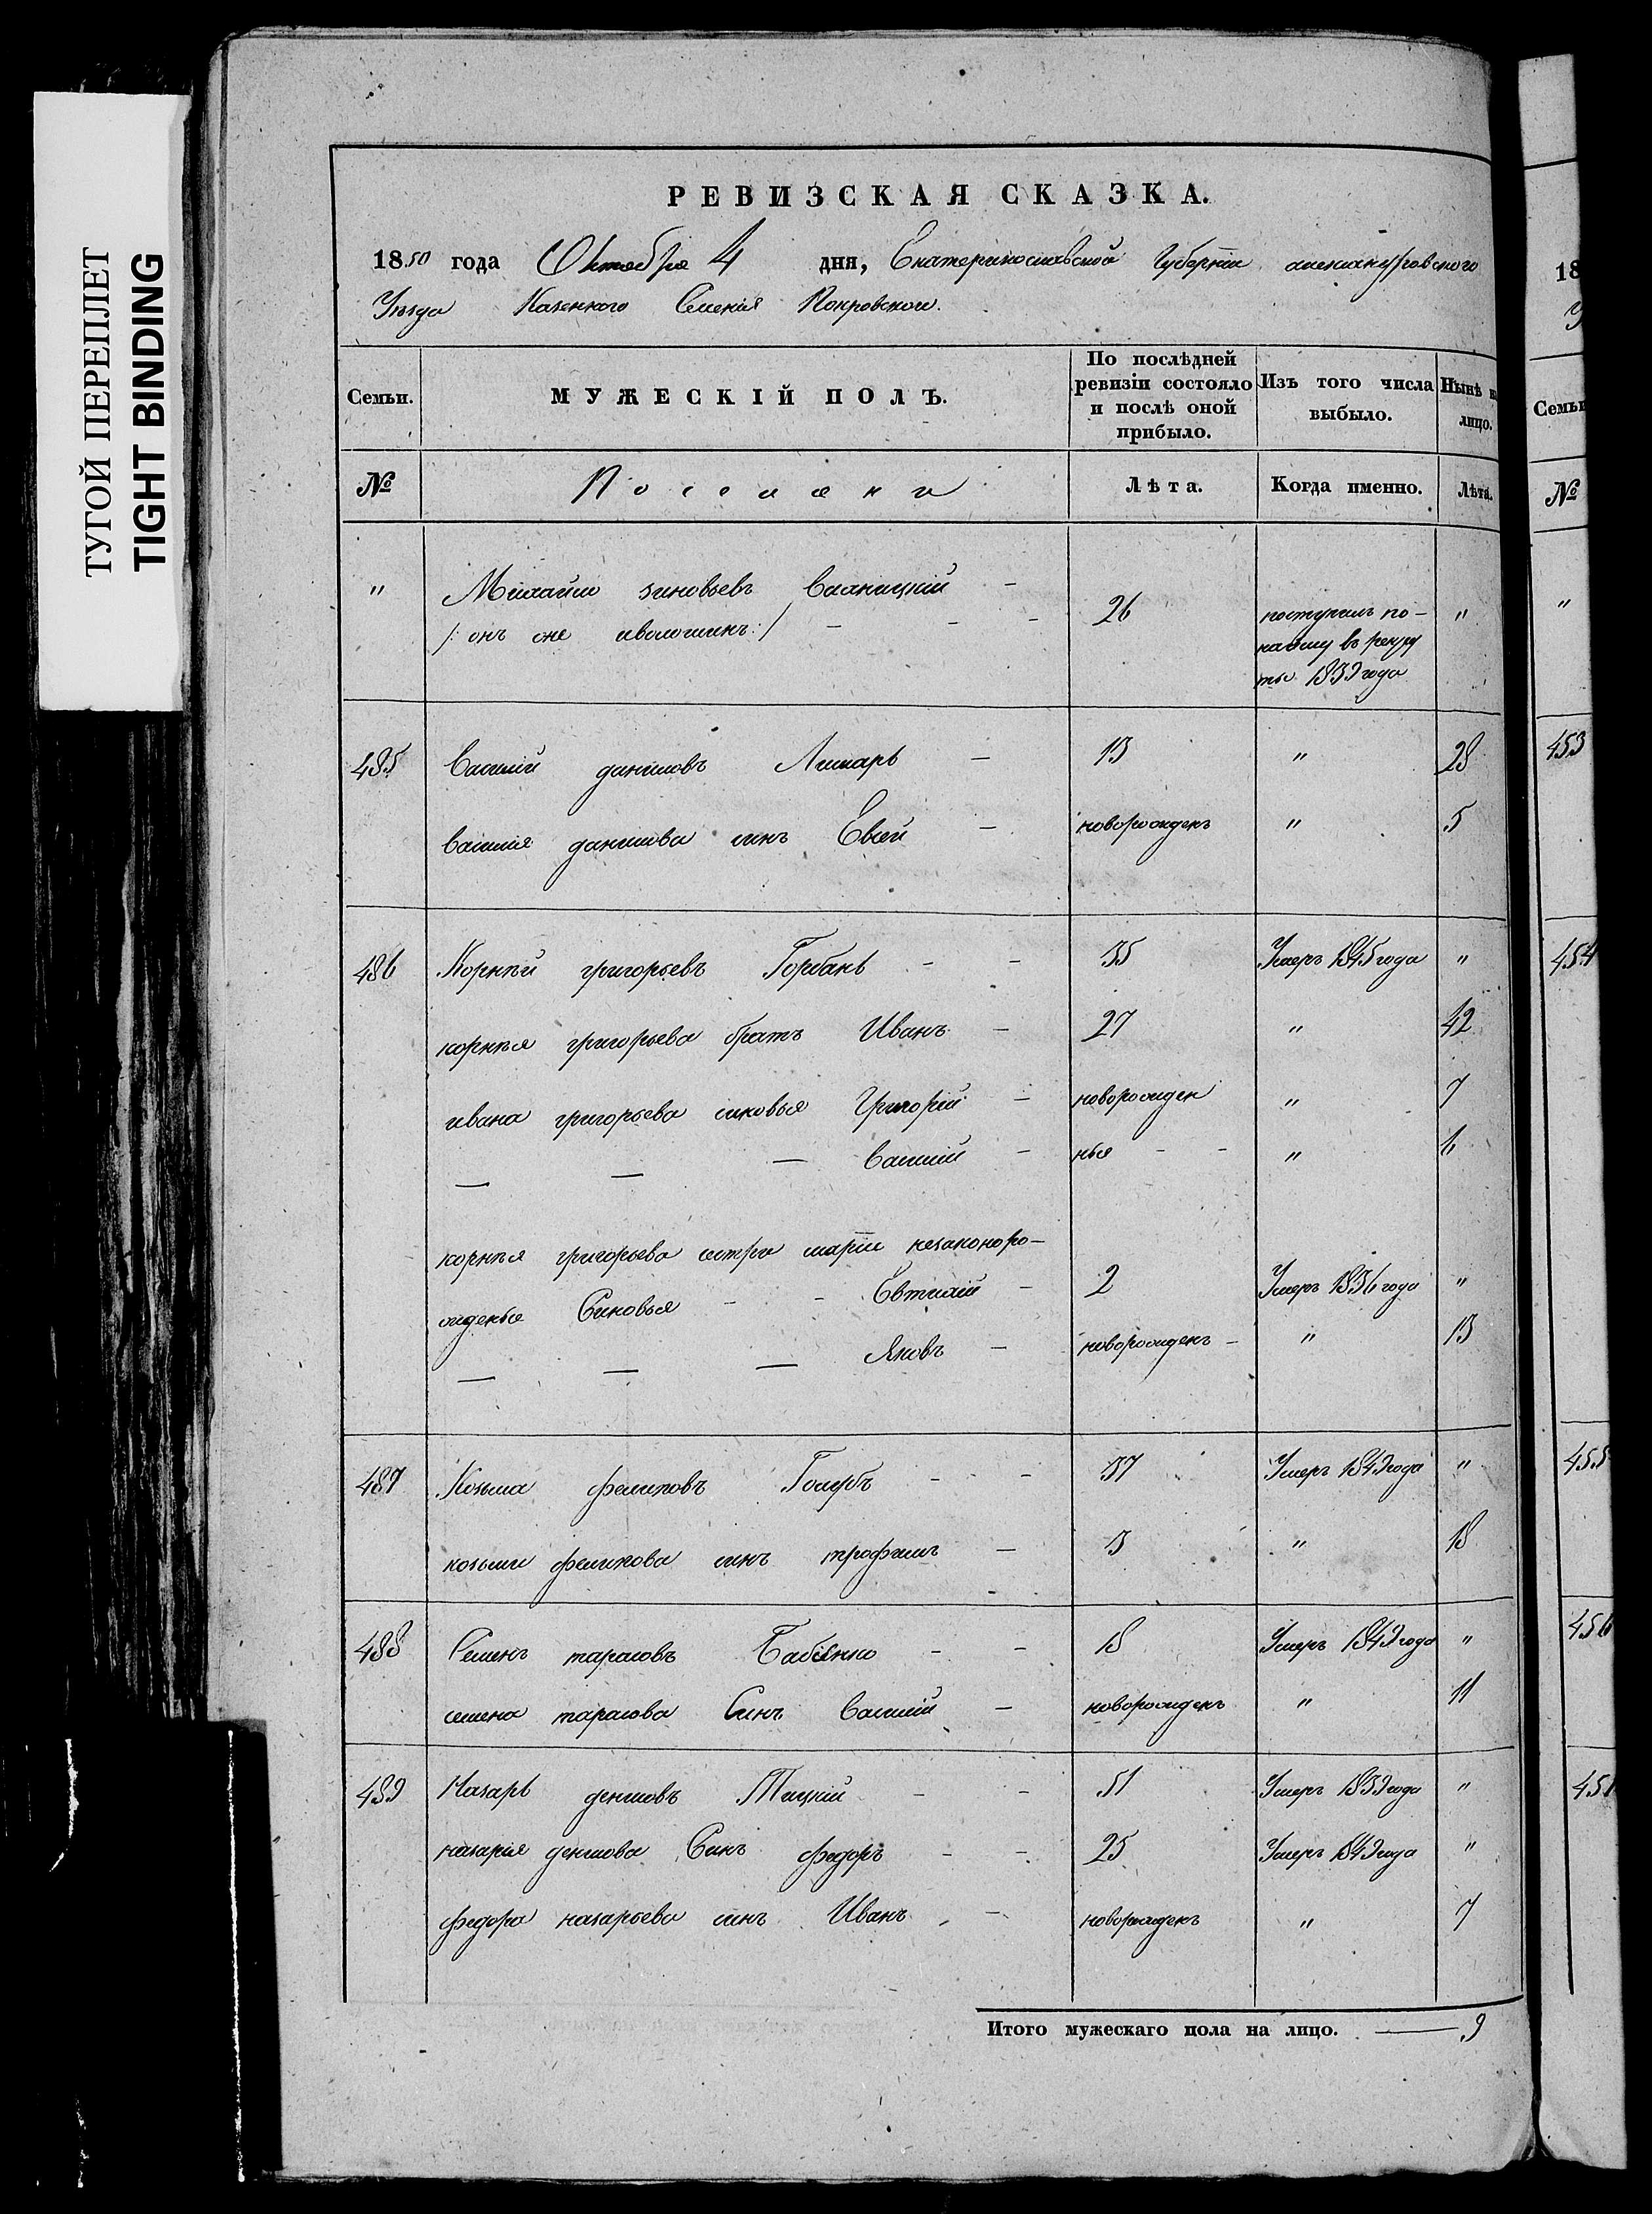 ТУГОЙ ПЕРЕПЛЕТ
TIGHT BINDING
РЕВИЗСКАЯ СКАЗКА.
1850 года Октября 4 дня, Екатеринославской Губерніи александровского
Уѣзда Казенного Селенія Покровского.
Семьи.
МУЖЕСКІЙ ПОЛЪ.
По послѣдней ревизіи состояло и послѣ оной прибыло.
Изъ того числа выбыло.
Нынѣ на лицо.
№ Поселяни Лѣта. Когда именно. Лѣта.
" Михайло зиновьевъ - 26 поступилъ по-
/: онъ же :/ - - - найму въ рекру
ты 1839 года "
485 Василій даниловъ Лимарь - 13 " 28
василія данилова синъ Евсей - новорожденъ " 5
486 Корнѣй григорьевъ Горбань - - 35 Умеръ 1845 года "
корнѣя григорьева братъ Иванъ - 27 " 42
ивана григорьева синовья Григорій - новорожден " 7
— — — василій - ныя - - " 6
корнѣя григорьева сестри маріи незаконоро-
жденые Синовья - - Евтихій - 2 Умеръ 1836 года "
— — — Яковъ - новорожденъ - " 13
487 Козьма филиповъ Голубъ - - 37 Умеръ 1849 года "
козьми филипова синъ трофимъ - 3 " 18
488 Семенъ тарасовъ Бабѣнко - - 18 Умеръ 1849 года "
семена тарасова Синъ василій - новорожденъ " 11
489 Назаръ денисовъ Тицкій - - 51 Умеръ 1839 года "
назарія денисова Синъ федоръ - - 25 Умеръ 1849 года "
федора назарьева синъ Иванъ - новорожденъ " 7
Итого мужескаго пола на лицо. — 9
18
Семьи
№
"
453
454
455
456